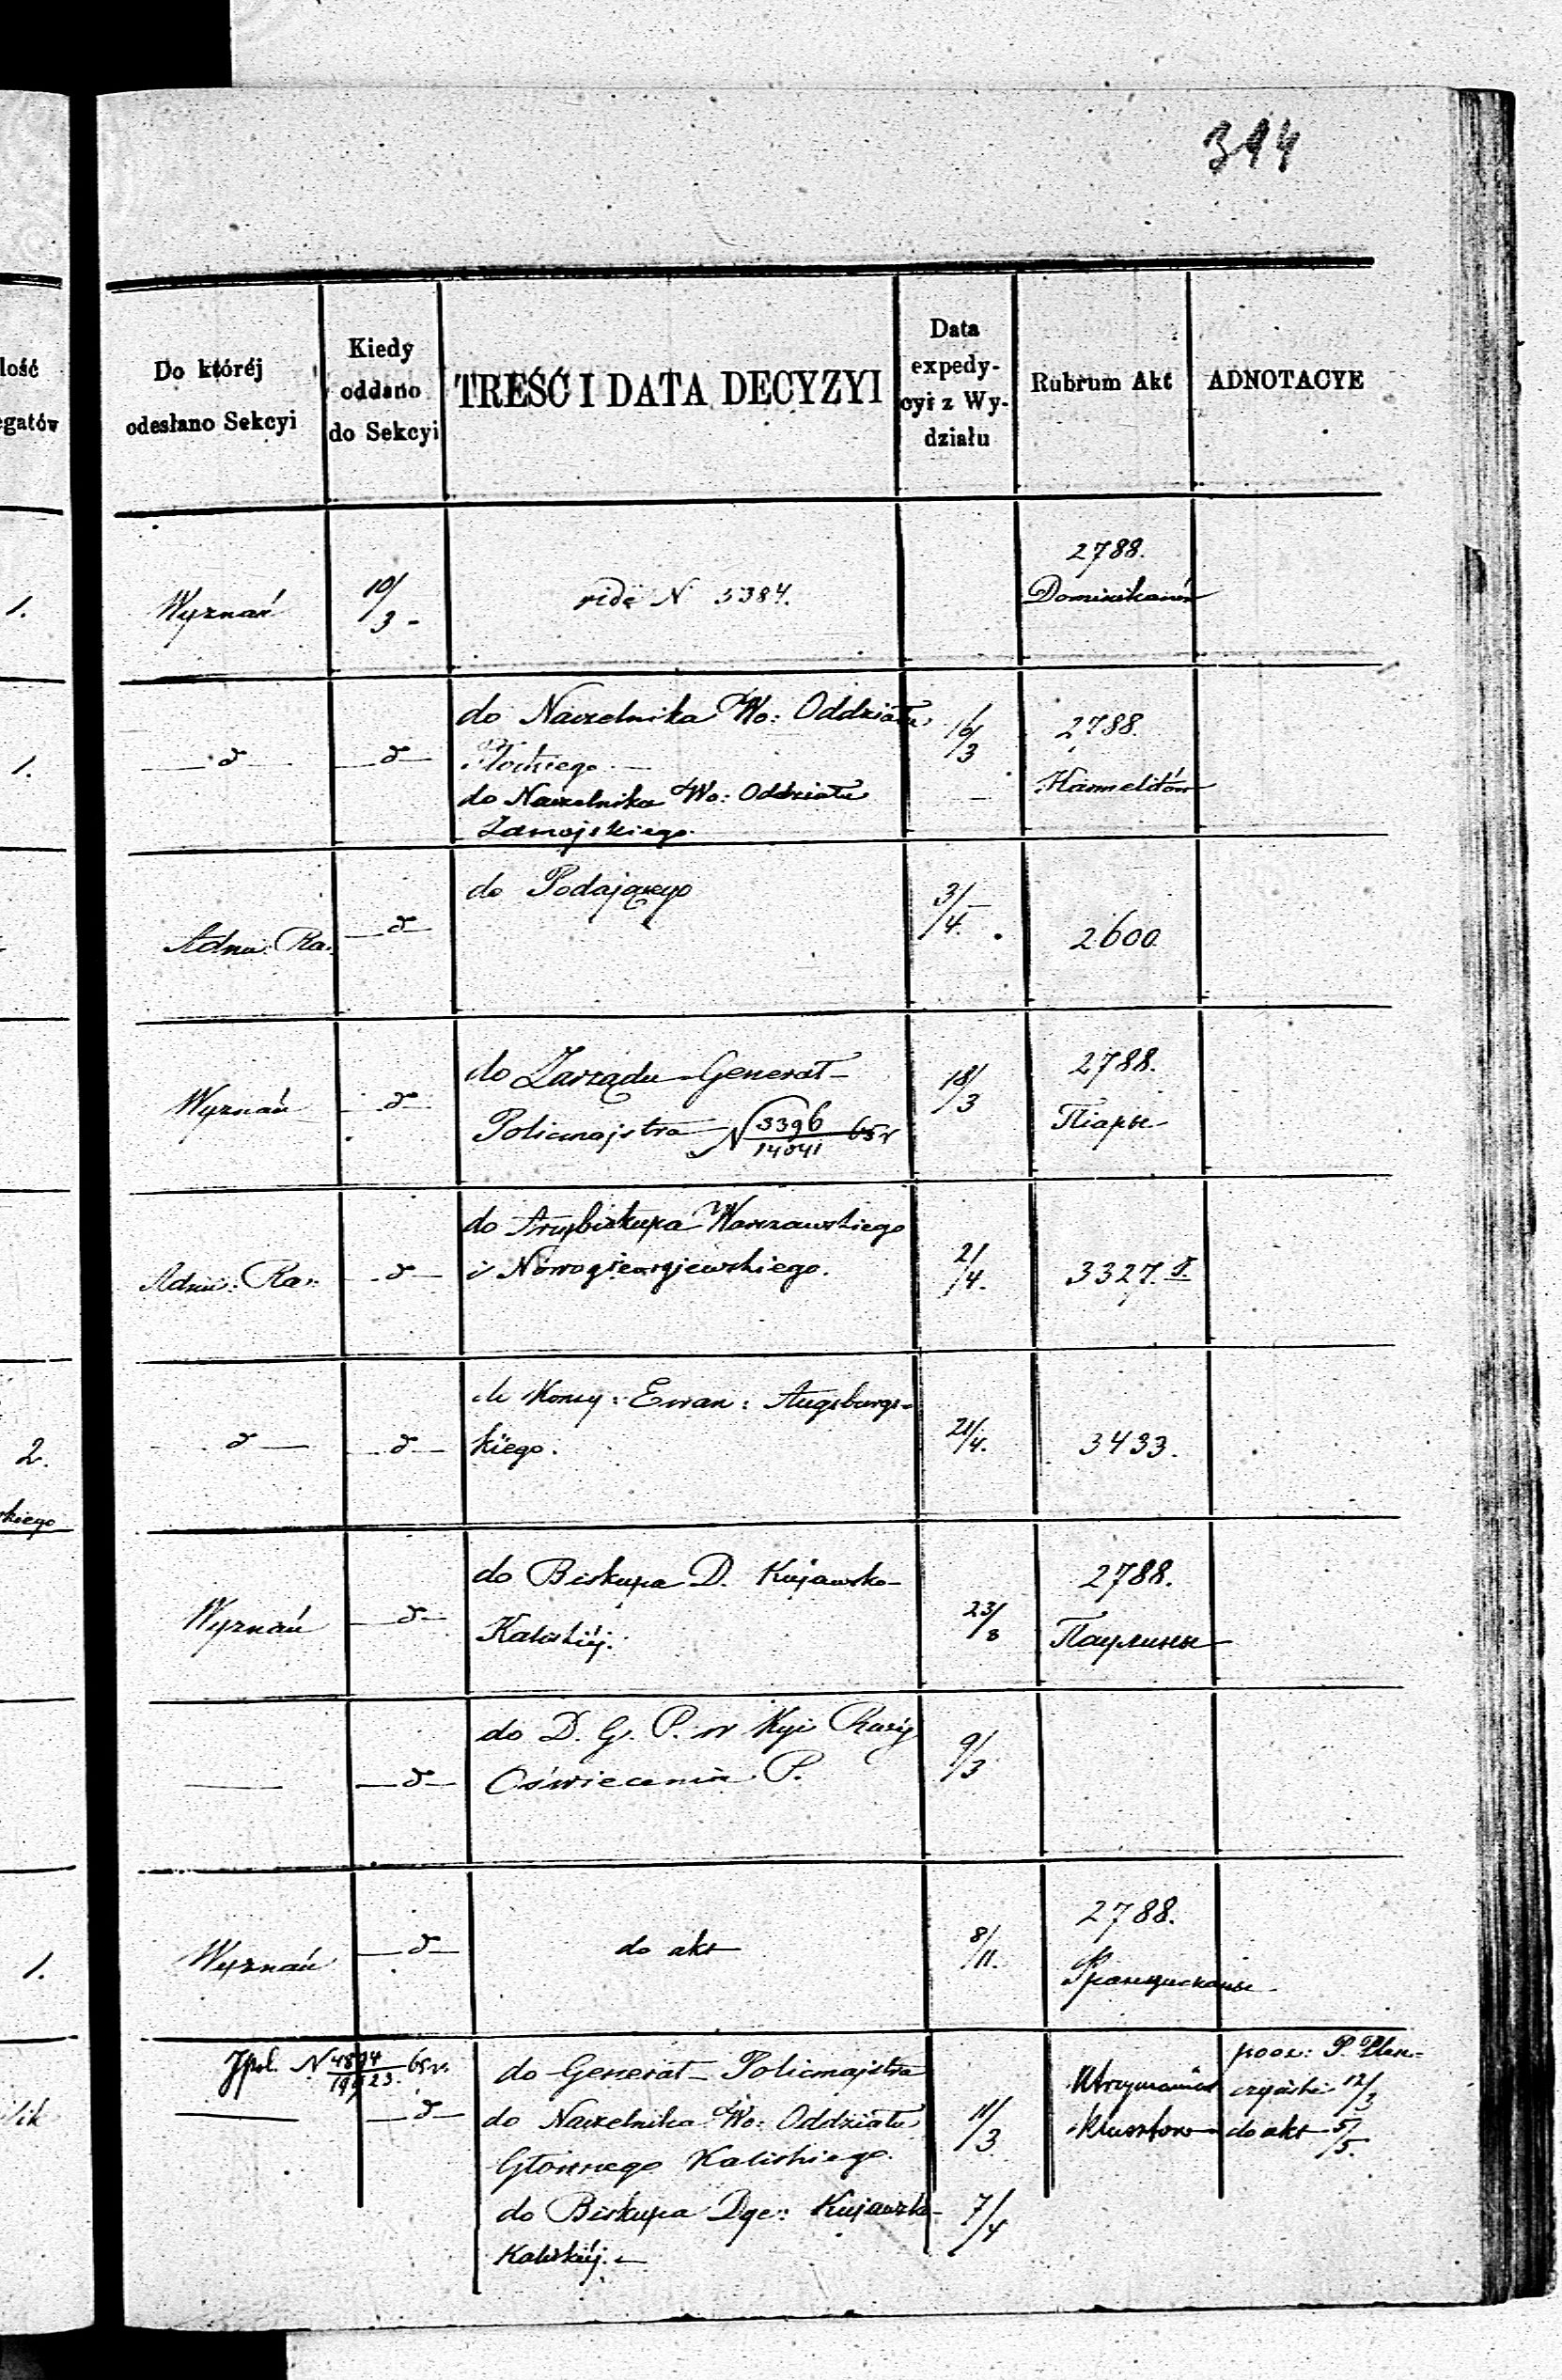 394
Do któréj
odesłano Sekcyi
Kiedy
oddano
do Sekcyi
TREŚĆ I DATA DECYZYI
Data
expedy-
cyi z Wy-
działu
Rubrum Akt
ADNOTACYE
lość
egatów
1.
Wyznań
10/3 -
vide N 5384.
2788.
Dominikanów
1.
— d —
— d —
do Naczelnika Wo: Oddziału
Płockiego —
do Naczelnika Wo: Oddziału
Zamojskiego.
16/3
2788.
Karmelitów
Adm: Ra.
— d —
do Podającego
3/4.
2600
Wyznań
— d —
do Zarządu General-
Policmajstra N 3396/14041 65 r
18/3
2788.
Піары
Adm: Ra:
— d —
do Arcybiskupa Warszawskiego
i Nowogieorgiewskiego.
2/4.
3327. I.
2.
skiego
— d —
— d —
do Konsy: Ewan: Augsburgs-
kiego.
21/4.
3433.
Wyznań
— d —
do Biskupa D. Kujawsko-
Kaliskiéj.
23/8
2788.
Паулины
—
— d —
do D. G. P. w Kyi Rząd
Oświecenia P.
9/3
1.
Wyznań
— d —
do akt
8/11.
2788.
Францискане
N 4894/19923. 65 r.
—
— d —
do General-Policmajstra
do Naczelnika Wo: Oddziału
Głównego Kaliskiego.
do Biskupa Dye: Kujawsko-
Kaliskiéj. —
11/3
7/4
Utrzymania
klasztorów
12/3
do akt 5/5.